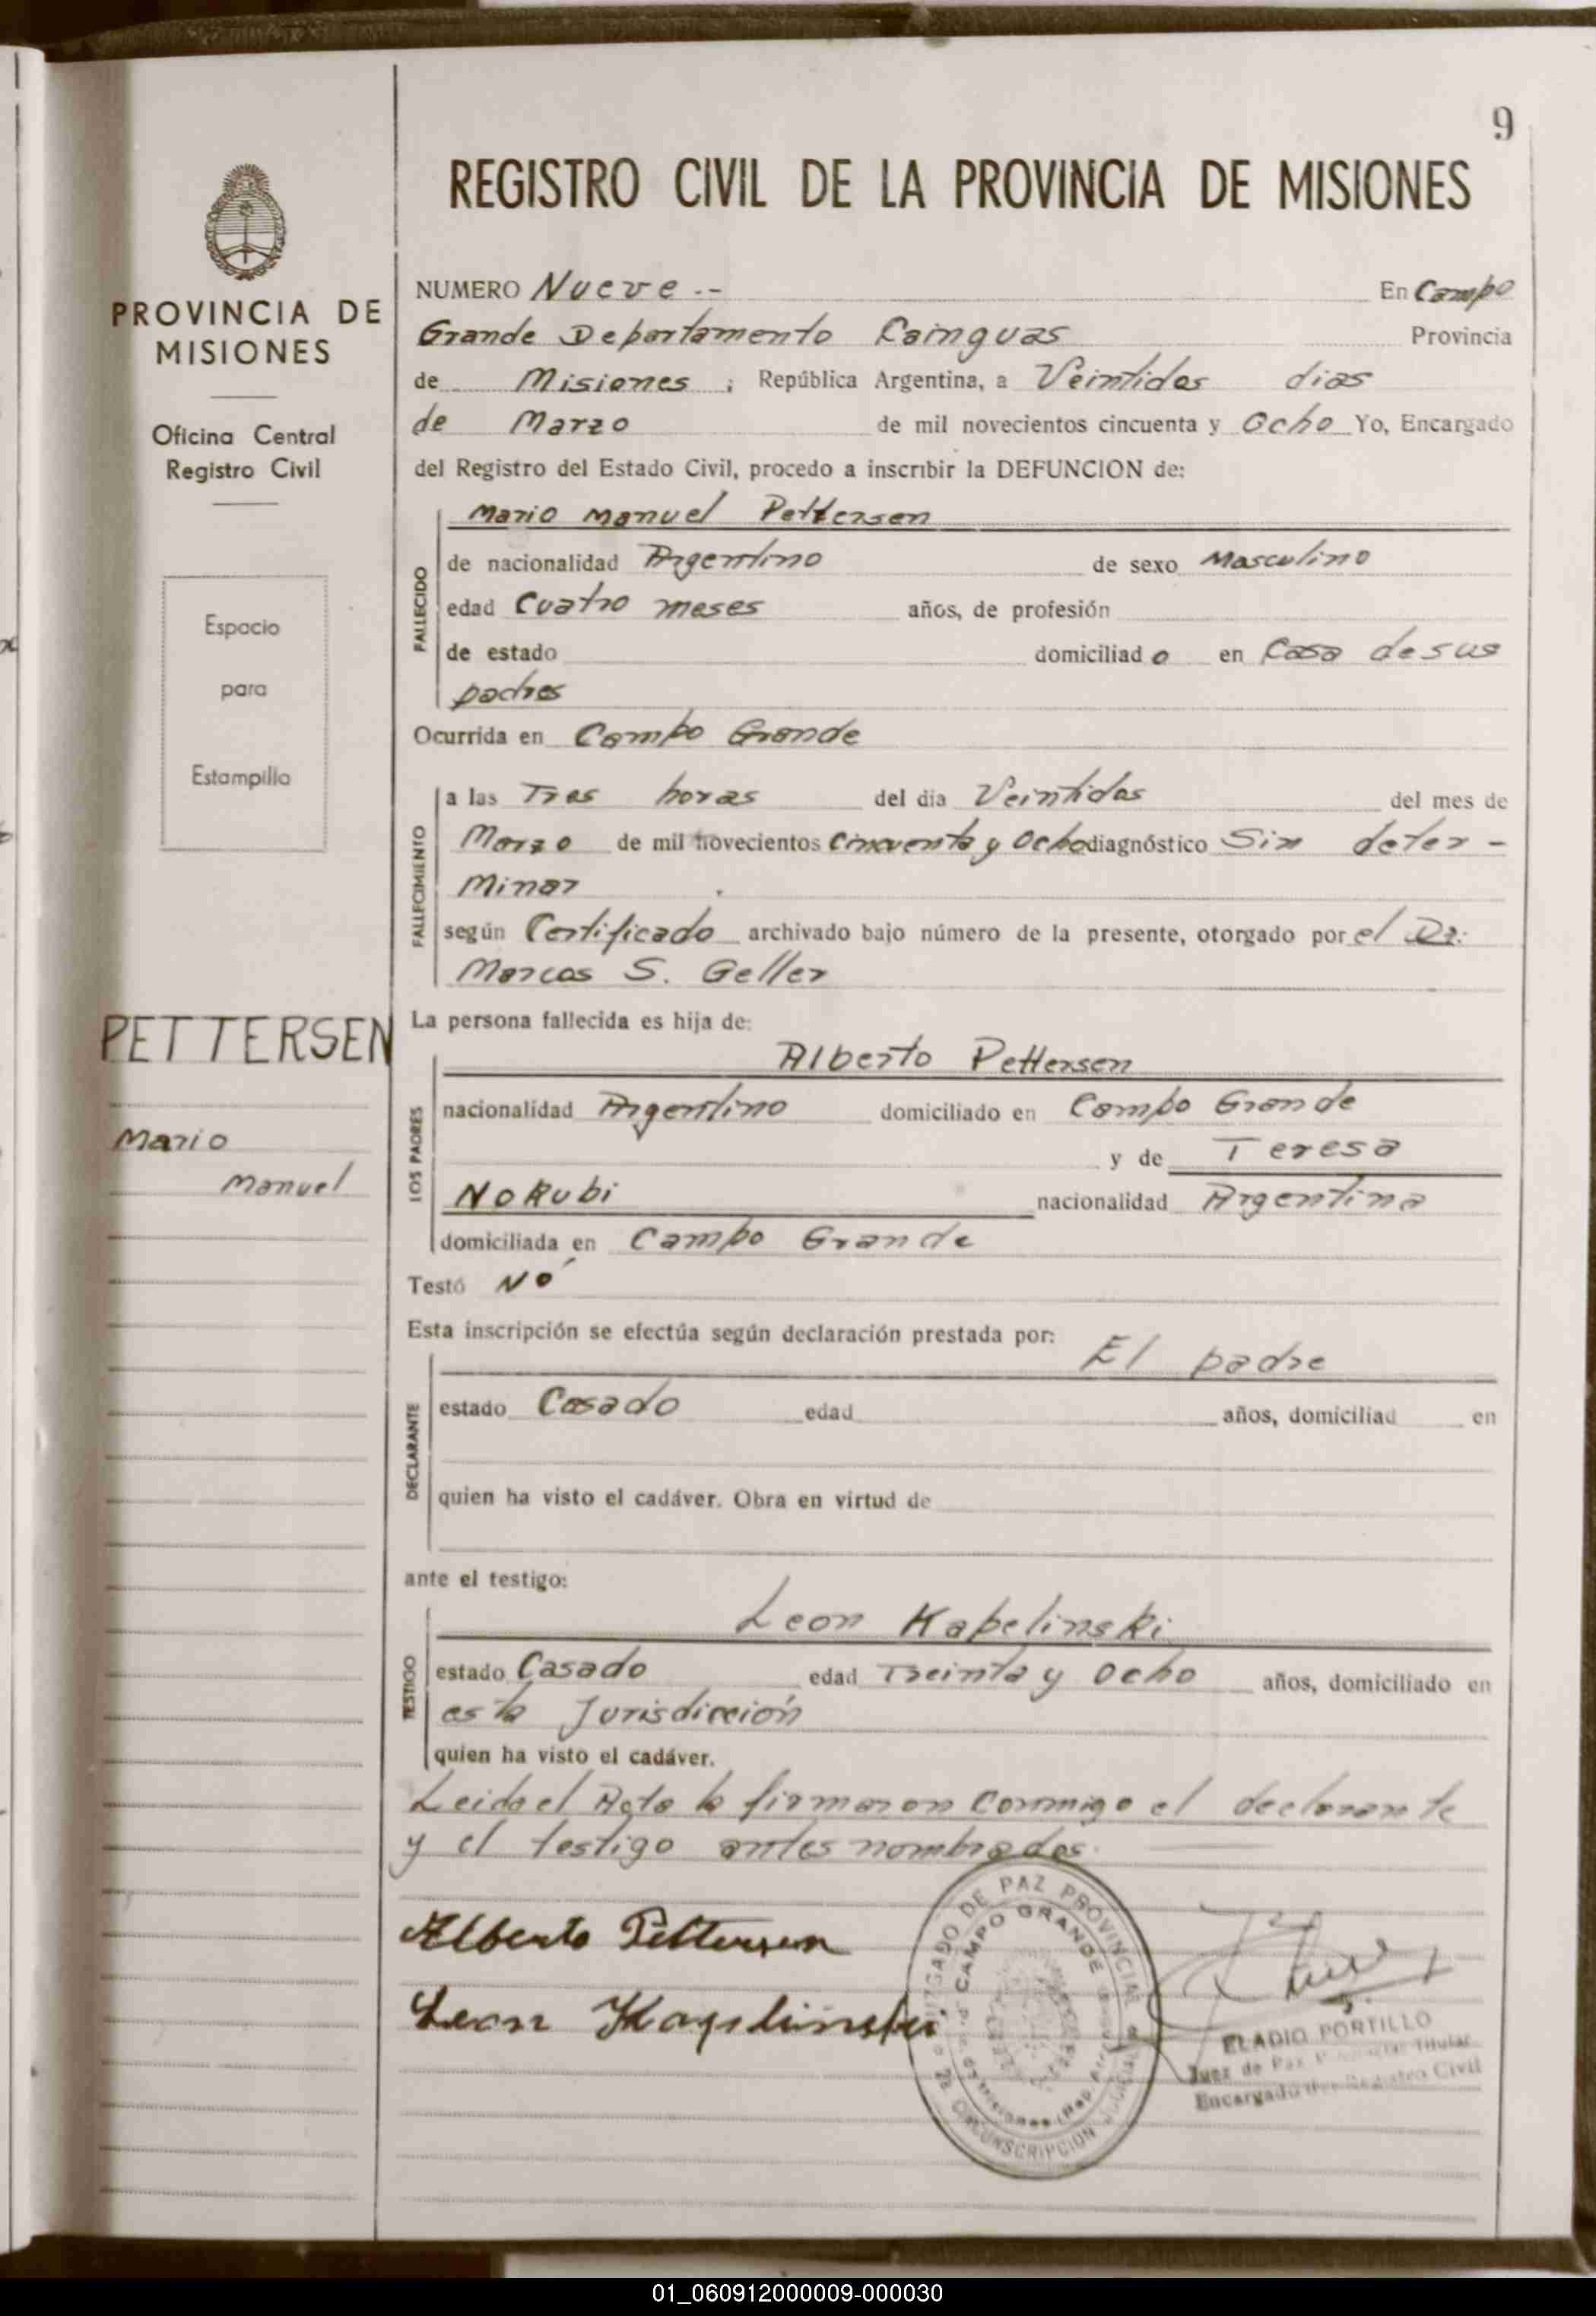 9
REGISTRO CIVIL DE LA PROVINCIA DE MISIONES
PROVINCIA DE
MISIONES
Oficina Central
Registro Civil
Espacio
para
Estampilla
PETTERSEN
Mario
Manuel
NUMERO Nueve .- En Campo
Grande Departamento Cainguas Provincia
de Misiones ; República Argentina, a Veintidos dias
de Marzo de mil novecientos cincuenta y Ocho Yo, Encargado
del Registro del Estado Civil, procedo a inscribir la DEFUNCION de:
Mario Manuel Pettersen
FALLECIDO
de nacionalidad Argentino de sexo Masculino
edad Cuatro meses años, de profesión
de estado domiciliado en Casa de sus
padres
Ocurrida en Campo Grande
FALLECIMIENTO
a las Tres horas del dia Veintidos del mes de
Marzo de mil novecientos Cincuenta y Ocho diagnóstico Sin deter-
minar
según Certificado archivado bajo número de la presente, otorgado por el Dr.
Marcos S. Geller
La persona fallecida es hija de:
LOS PADRES
Alberto Pettersen
nacionalidad Argentino domiciliado en Campo Grande
y de Teresa
NoRubi nacionalidad Argentina
domiciliada en Campo Grande
Testó Nó
Esta inscripción se efectúa según declaración prestada por:
DECLARANTE
El padre
estado Casado edad años, domiciliad en
quien ha visto el cadáver. Obra en virtud de
ante el testigo:
TESTIGO
Leon Kapelinski
estado Casado edad Treinta y Ocho años, domiciliado en
esta Jurisdicción
quien ha visto el cadáver.
Leida el Acta la firmaron conmigo el declarante
y el testigo antes nombrados.
Alberto Pettersen
Leon Kapelinski
JUZGADO DE PAZ PROVINCIAL
CAMPO GRANDE
CIRCUNSCRIPCION JUDICIAL
ELADIO PORTILLO
Juez de Paz Provincial Titular
Encargado del Registro Civil
01_060912000009-000030